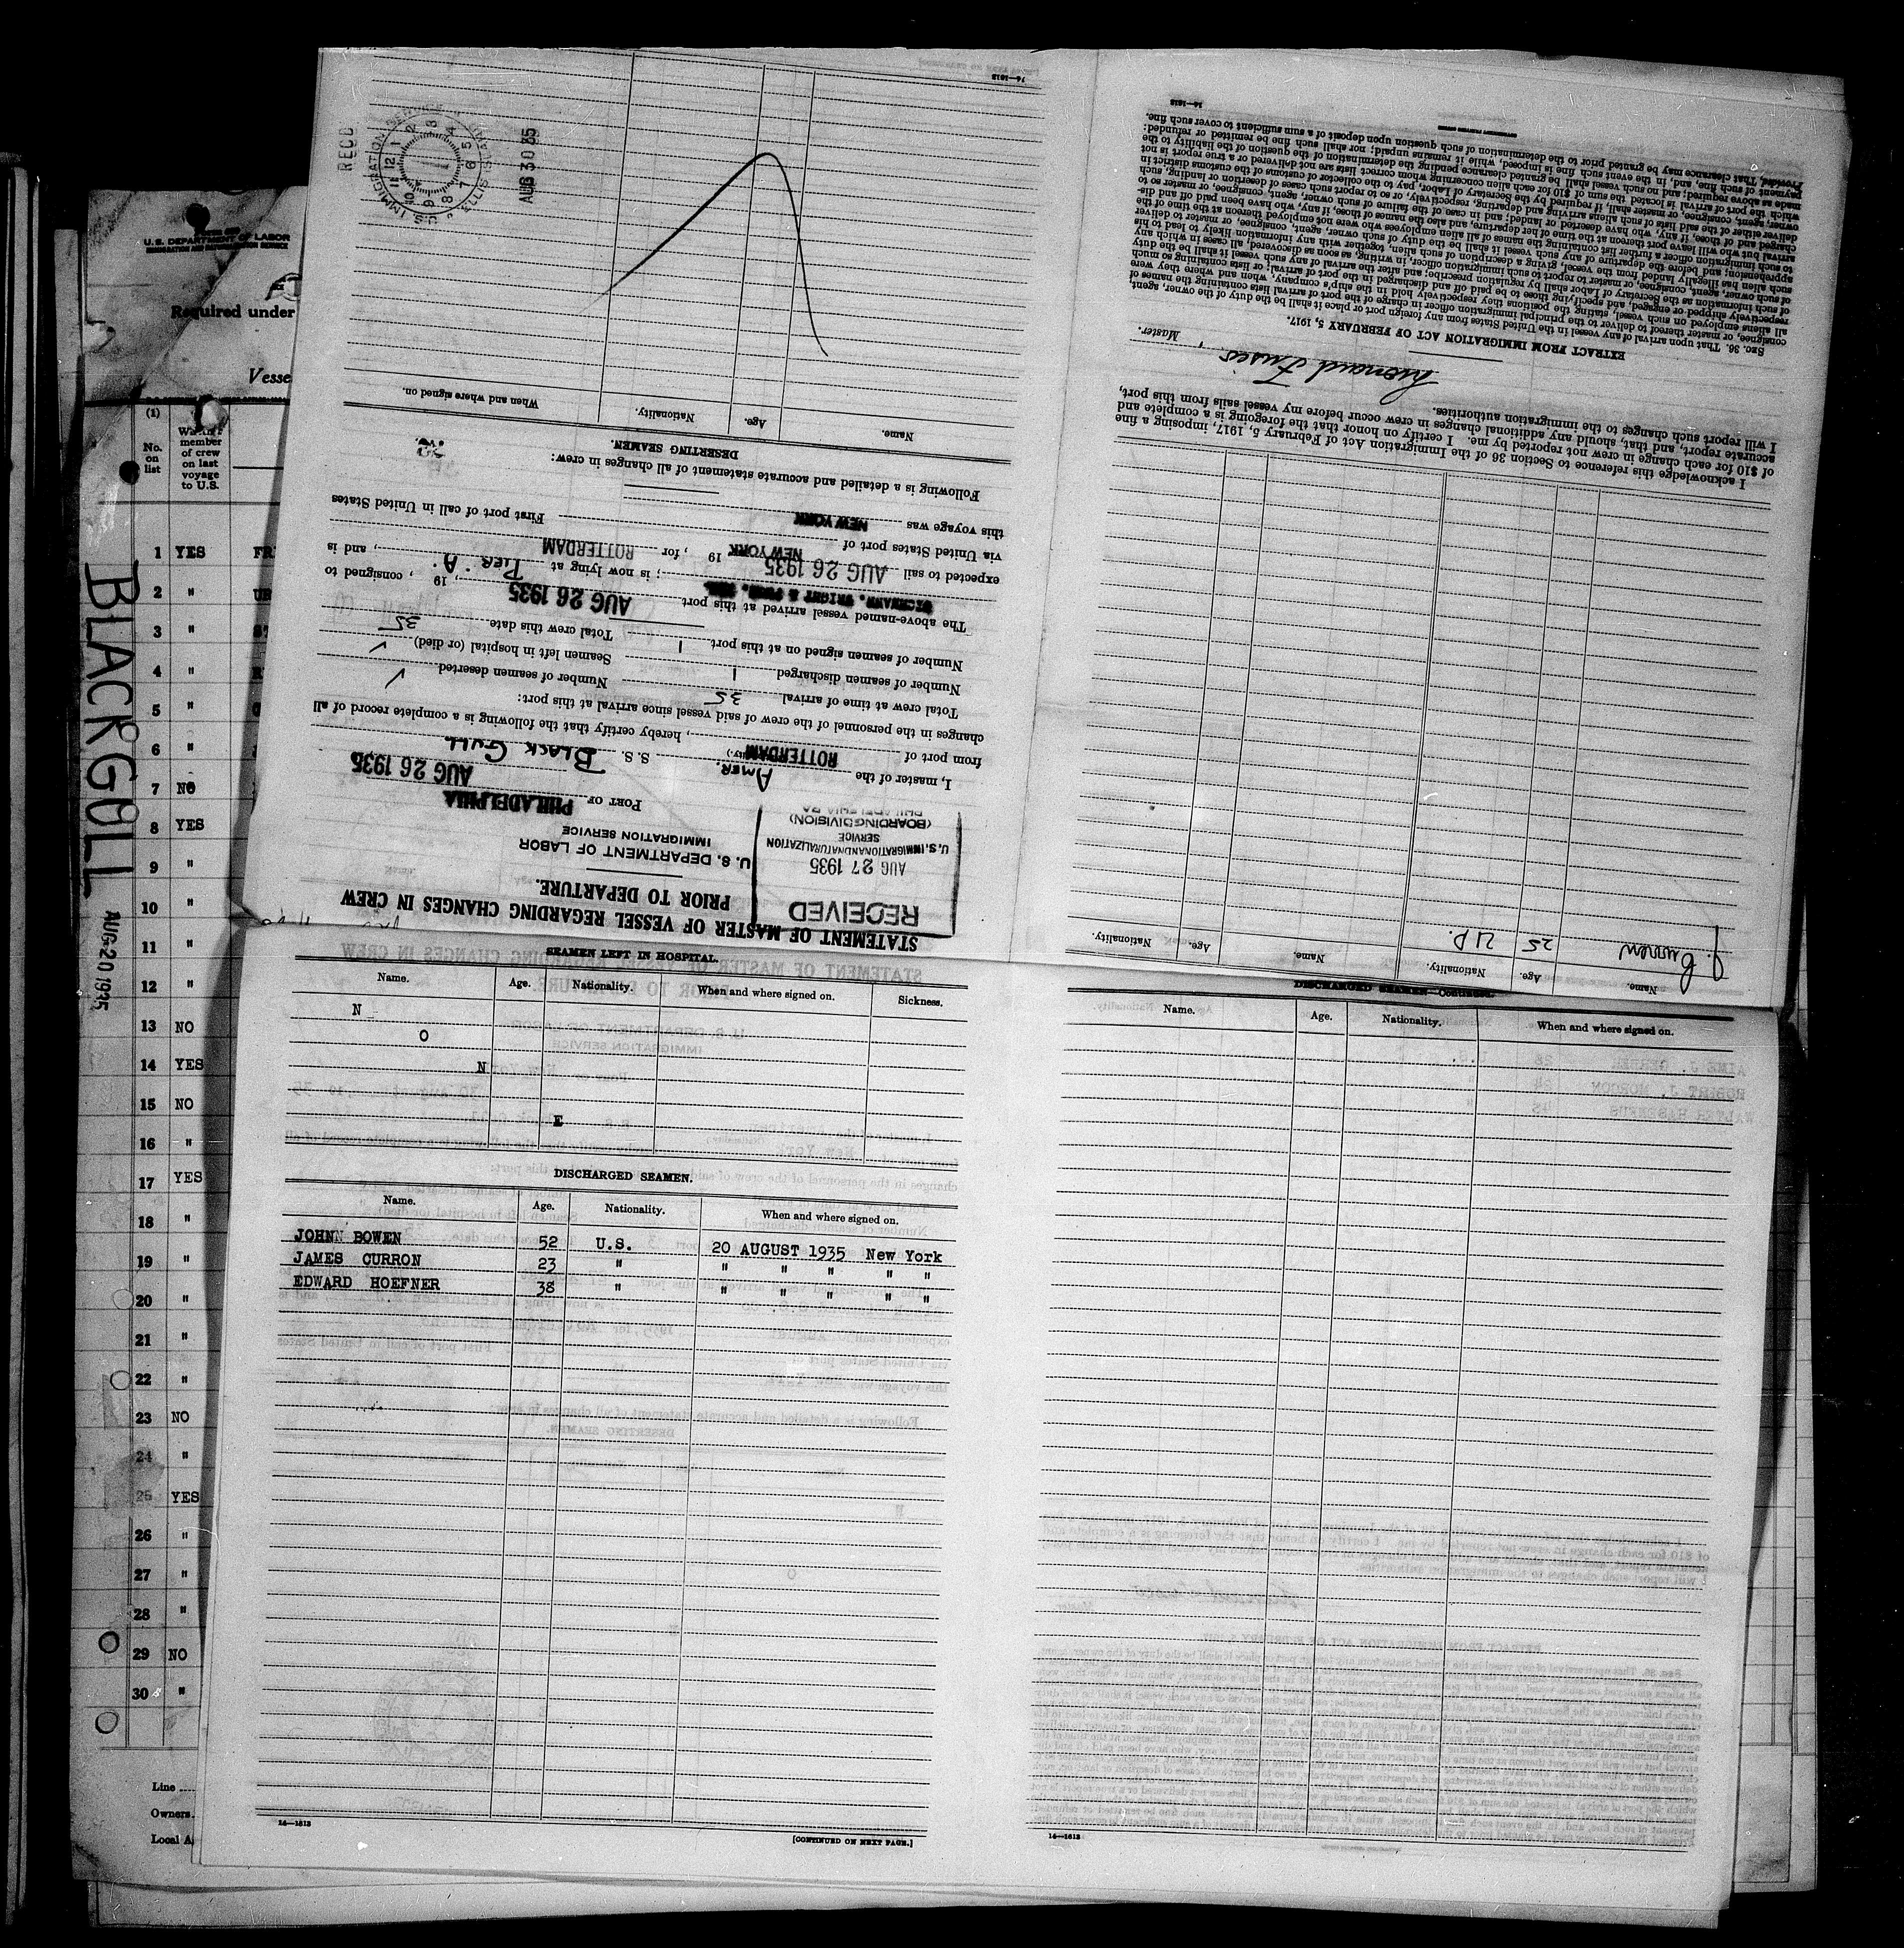 U.S. DEPARTMENT OF LABOR
Required under
(1)
No.
on
list
member
of crew
on last
voyage
to U.S.
1 YES
2 "
3 "
4 "
5 "
6 "
7 NO
8 YES
9 "
10 "
11 "
12 "
13 NO
14 YES
15 NO
16 "
17 YES
18 "
19 "
20 "
21 "
22 "
23 NO
24 "
25 YES
26 "
27 "
28 "
29 NO
30 "
Line
Owners
BLACK GULL
AUG 20 1935
STATEMENT OF MASTER OF VESSEL REGARDING CHANGES IN CREW
PRIOR TO DEPARTURE.
RECEIVED
AUG 27 1935
U.S. IMMIGRATION AND NATURALIZATION
SERVICE
(BOARDING DIVISION)
PHILADELPHIA PA
U. S. DEPARTMENT OF LABOR
IMMIGRATION SERVICE
PORT OF PHILADELPHIA
AUG 26 1935
I, master of the Amer. S. S. BLACK GULL
from port of ROTTERDAM, hereby certify that the following is a complete record of all
changes in the personnel of the crew of said vessel since arrival at this port:
Total crew at time of arrival 35 Number of seamen deserted ✓
Number of seamen discharged 1 Seamen left in hospital (or died) ✓
Number of seamen signed on at this port 1 Total crew this date 35
The above-named vessel arrived at this port AUG 26 1935, 19 , consigned to
; is now lying at PIER A, and is
expected to sail AUG 26 1935 19 , for ROTTERDAM
via United States port of NEW YORK
First port of call in United States
this voyage was NEW YORK
Following is a detailed and accurate statement of all changes in crew:
DESERTING SEAMEN.
Name. Age. Nationality. When and where signed on.
REC'D
U.S. IMMIGRATION SERVICE
AUG 30 35
14—1613
Name. Age. Nationality. Name. Age. Nationality.
25
I acknowledge this reference to Section 36 of the Immigration Act of February 5, 1917, imposing a fine
of $10 for each change in crew not reported by me. I certify on honor that the foregoing is a complete and
accurate report, and that, should any additional changes in crew occur before my vessel sails from this port,
I will report such changes to the immigration authorities.
Master.
EXTRACT FROM IMMIGRATION ACT OF FEBRUARY 5, 1917.
SEC. 36. That upon arrival of any vessel in the United States from any foreign port or place it shall be the duty of the owner, agent,
consignee, or master thereof to deliver to the principal immigration officer in charge of the port of arrival lists containing the names of
all aliens employed on such vessel, stating the positions they respectively hold in the ship's company, when and where they were
respectively shipped or engaged, and specifying those to be paid off and discharged in the port of arrival; or lists containing so much
of such information as the Secretary of Labor shall by regulation prescribe; and after the arrival of any such vessel it shall be the duty
of such owner, agent, consignee, or master to report to such immigration officer, in writing, as soon as discovered, all cases in which any
such alien has illegally landed from the vessel, giving a description of such alien, together with any information likely to lead to his
apprehension; and before the departure of any such vessel it shall be the duty of such owner, agent, consignee, or master to deliver
to such immigration officer a further list containing the names of all alien employees who were not employed thereon at the time of the
arrival but who will leave port thereon at the time of her departure, and also the names of those, if any, who have been paid off and dis-
charged and of those, if any, who have deserted or landed; and in case of the failure of such owner, agent, consignee, or master so to
deliver either of the said lists of such aliens arriving and departing, respectively, or so to report such cases of desertion or landing, such
owner, agent, consignee, or master shall, if required by the Secretary of Labor, pay to the collector of customs of the customs district in
which the port of arrival is located the sum of $10 for each alien concerning whom correct lists are not delivered or a true report is not
made as above required; and no such vessel shall be granted clearance pending the determination of the question of the liability to the
payment of such fine, and, in the event such fine is imposed, while it remains unpaid; nor shall such fine be remitted or refunded:
Provided, That clearance may be granted prior to the determination of such question upon deposit of a sum sufficient to cover such fine.
14—1613
SEAMEN LEFT IN HOSPITAL
Name. Age. Nationality. When and where signed on. Sickness.
N
O
N
E
DISCHARGED SEAMEN.
Name. Age. Nationality. When and where signed on.
JOHN BOWEN 52 U.S. 20 AUGUST 1935 New York
JAMES CURRON 23 " " " " " "
EDWARD HOEFNER 38 " " " " " "
14—1613 [CONTINUED ON NEXT PAGE.]
DISCHARGED SEAMEN—Continued.
Name. Age. Nationality. When and where signed on.
14—1613